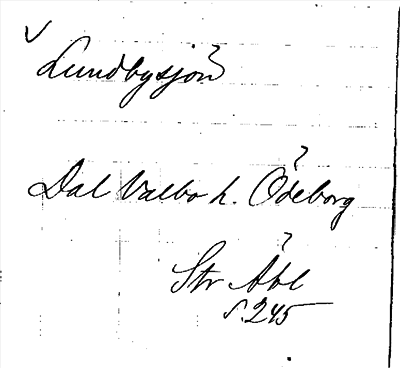 Lundbysjön
Dal Valbo h. Ödeborg
Str Åbl
s. 245